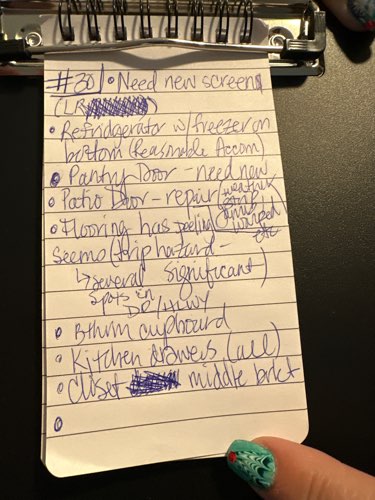 #301 • Need new screens
(LR
• Refridgerator w/freezer on
bottom (Reasonable Accom)
• Pantry Door - need new
• Patio Door - repair (weather
• Flooring has peeling
warped
etc
seems (trip hazard -
↳ several significant)
spots in
DR/HLWY
• Bthrm cupboard
• Kitchen drawers (all)
• Closet middle brkt
•